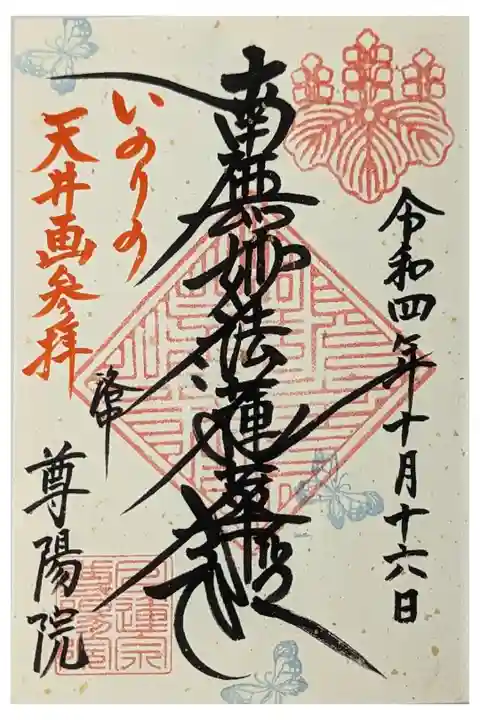 令和四年十月十六日
南無妙法蓮華経
いのりの
天井画参拝
尊陽院